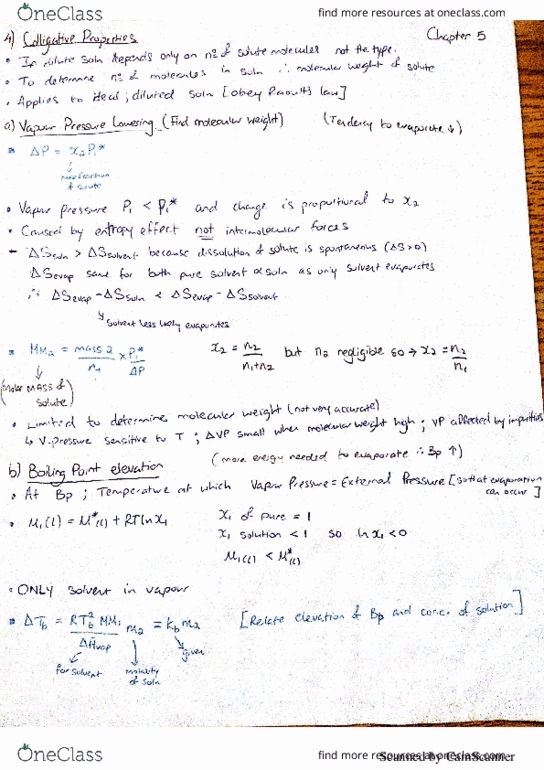 OneClass
find more resources at oneclass.com
4) Colligative Properties
Chapter 5
• In dilute soln depends only on nº of solute molecules not the type.
• To determine nº of molecules in soln ∴ molecular weight of solute
• Applies to ideal; diluted soln [obey Raoult's law]
a) Vapour Pressure Lowering (Find molecular weight) (Tendency to evaporate ↓)
ΔP = x₂P₁*
mole fraction of solute
• Vapour pressure P₁ < P₁* and change is proportional to x₂
• Caused by entropy effect not intermolecular forces
- ΔSsoln > ΔSsolvent because dissolution of solute is spontaneous (ΔS>0)
ΔSevap same for both pure solvent & soln as only solvent evaporates
∴ ΔSevap - ΔSsoln < ΔSevap - ΔSsolvent
↳ Solvent less likely evaporates
MM₂ = mass 2 / n₁ × P₁* / ΔP
x₂ = n₂ / n₁+n₂ but n₂ negligible so → x₂ = n₂ / n₁
(molar mass of solute)
• Limited to determine molecular weight (not very accurate)
↳ V.pressure sensitive to T ; ΔVP small when molecular weight high ; VP affected by impurities
b) Boiling Point elevation (more energy needed to evaporate ∴ Bp ↑)
• At Bp ; Temperature at which Vapour Pressure = External Pressure [so that evaporation can occur]
• μ₁(l) = μ*(l) + RT ln x₁
x₁ of pure = 1
x₁ solution < 1 so ln x₁ < 0
μ₁(l) < μ*(l)
• ONLY solvent in vapour
ΔTb = RTb² MM₁ / ΔHvap m₂ = kb m₂ [Relate elevation of Bp and conc. of solution]
for solvent
molality of soln
given
OneClass
find more resources at oneclass.com
Scanned by CamScanner